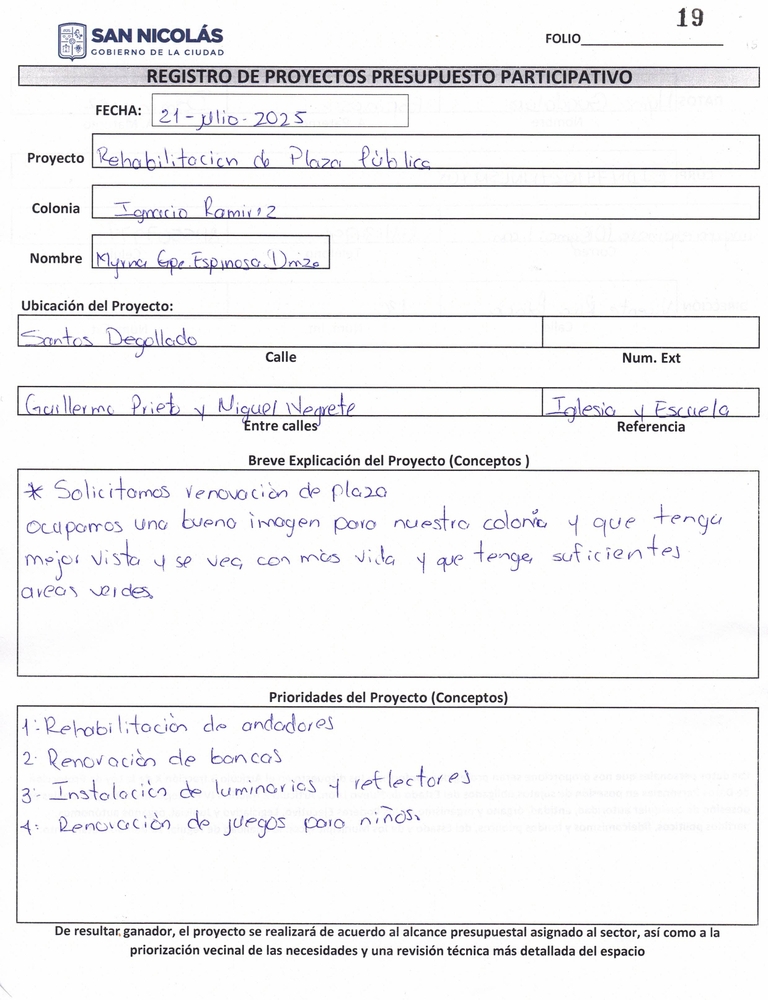 19
SAN NICOLÁS
GOBIERNO DE LA CIUDAD
FOLIO
REGISTRO DE PROYECTOS PRESUPUESTO PARTICIPATIVO
FECHA: 21-julio-2025
Proyecto Rehabilitación de Plaza Pública
Colonia Ignacio Ramirez
Nombre Myrna Gpe. Espinosa
Ubicación del Proyecto:
Santos Degollado
Calle Num. Ext
Guillermo Prieto y Miguel Negrete Iglesia y Escuela
Entre calles Referencia
Breve Explicación del Proyecto (Conceptos )
* Solicitamos renovación de plaza
ocupamos una buena imagen para nuestra colonia y que tenga
mejor vista y se vea con más vida y que tenga suficientes
areas verdes.
Prioridades del Proyecto (Conceptos)
1: Rehabilitación de andadores
2: Renovación de bancas
3: Instalación de luminarias y reflectores
4: Renovación de juegos para niños.
De resultar ganador, el proyecto se realizará de acuerdo al alcance presupuestal asignado al sector, así como a la
priorización vecinal de las necesidades y una revisión técnica más detallada del espacio